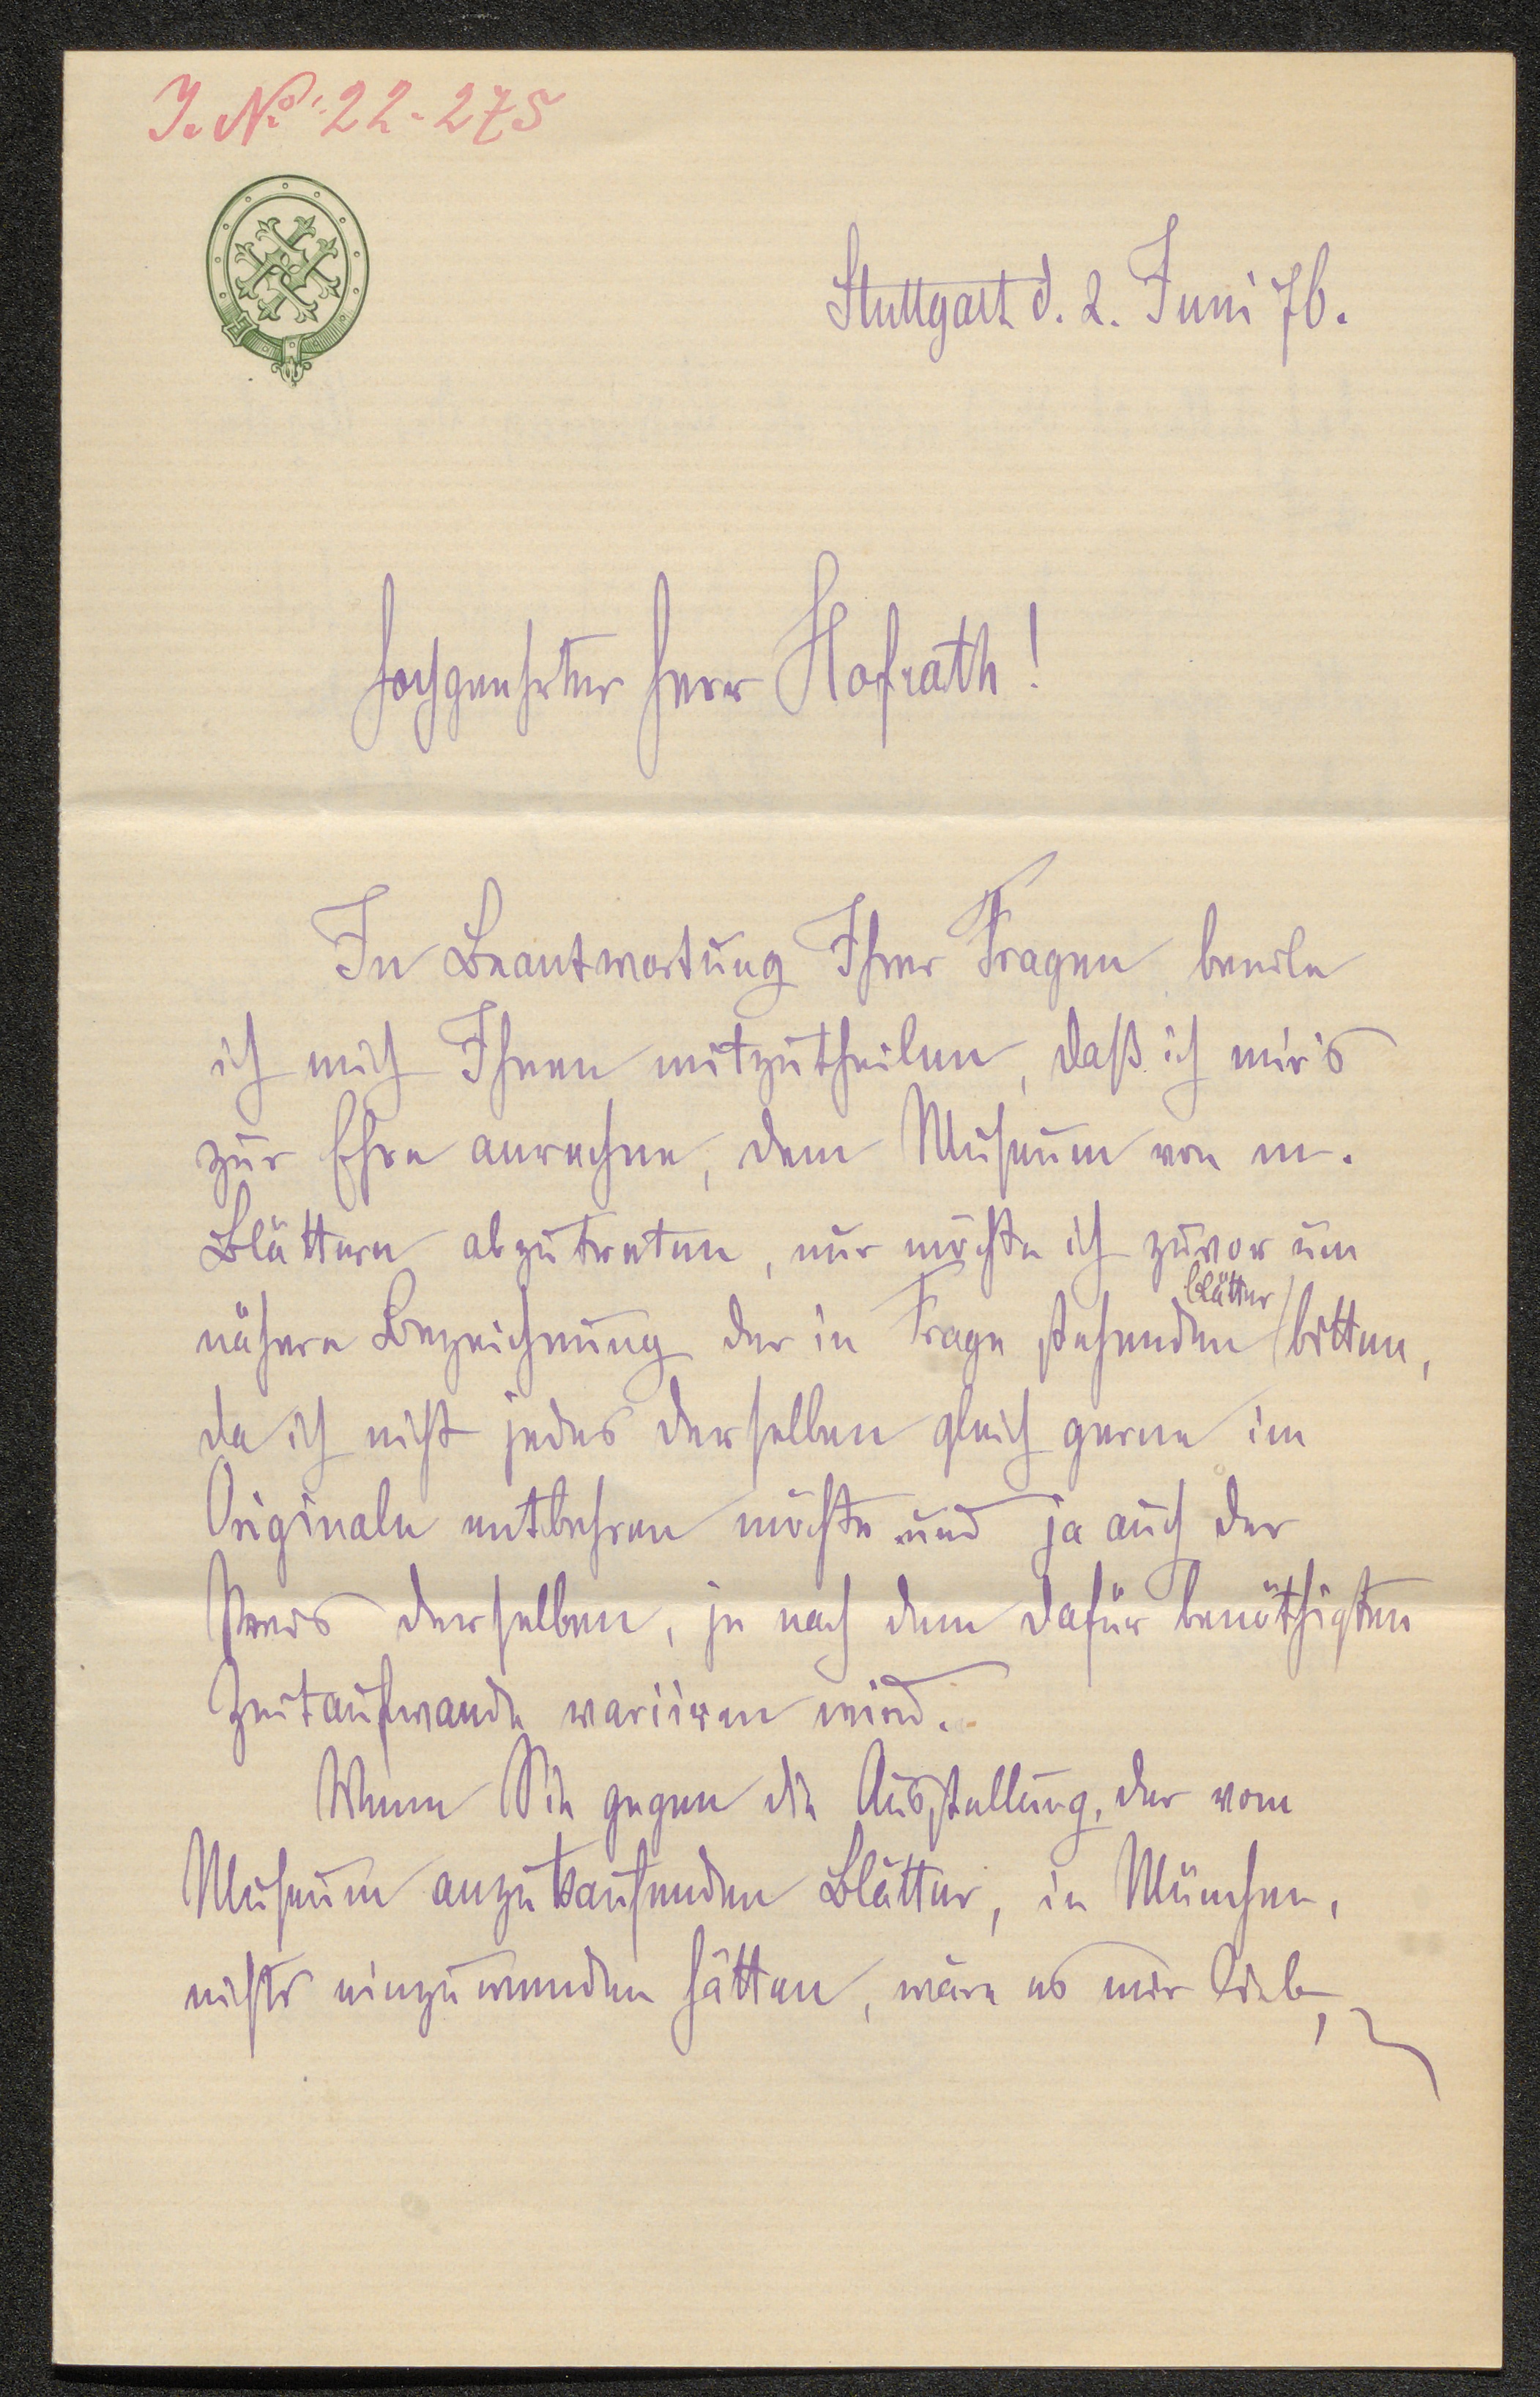 J. No 22-275
Stuttgart d. 2. Juni 76.
Hochgeehrter Herr Hofrath!
In Beantwortung Ihrer Fragen beeile
ich mich Ihnen mitzutheilen, daß ich mir's
zur Ehre anrechne, dem Museum von m.
Blättern abzutreten, nur möchte ich zuvor um
nähere Bezeichnung der in Frage stehenden Blätter bitten,
da ich nicht jedes derselben gleich gerne im
Originale entbehren möchte und ja auch der
Preis derselben, je nach dem dafür benöthigten
Zeitaufwande variiren wird.
Wenn Sie gegen die Ausstellung, der vom
Museum anzukaufenden Blätter, in München,
nichts einzuwenden hätten, wäre es mir lieb,